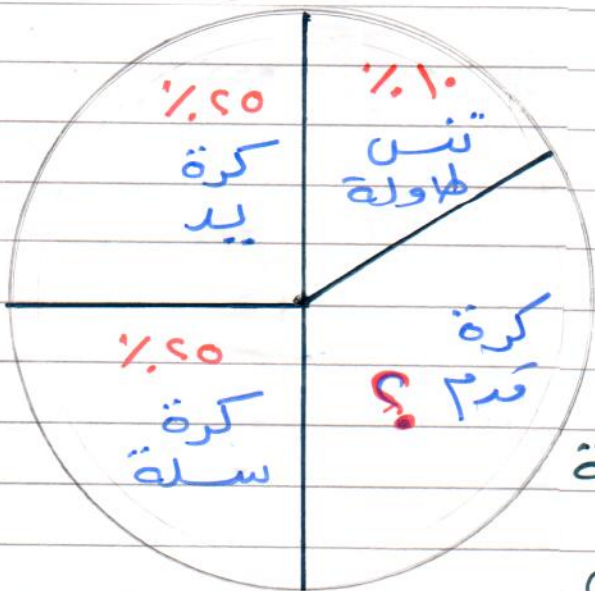 ٪١٠
تنس
طاولة
٪٢٥
كرة
يد
٪٢٥
كرة
سلة
كرة
قدم ؟